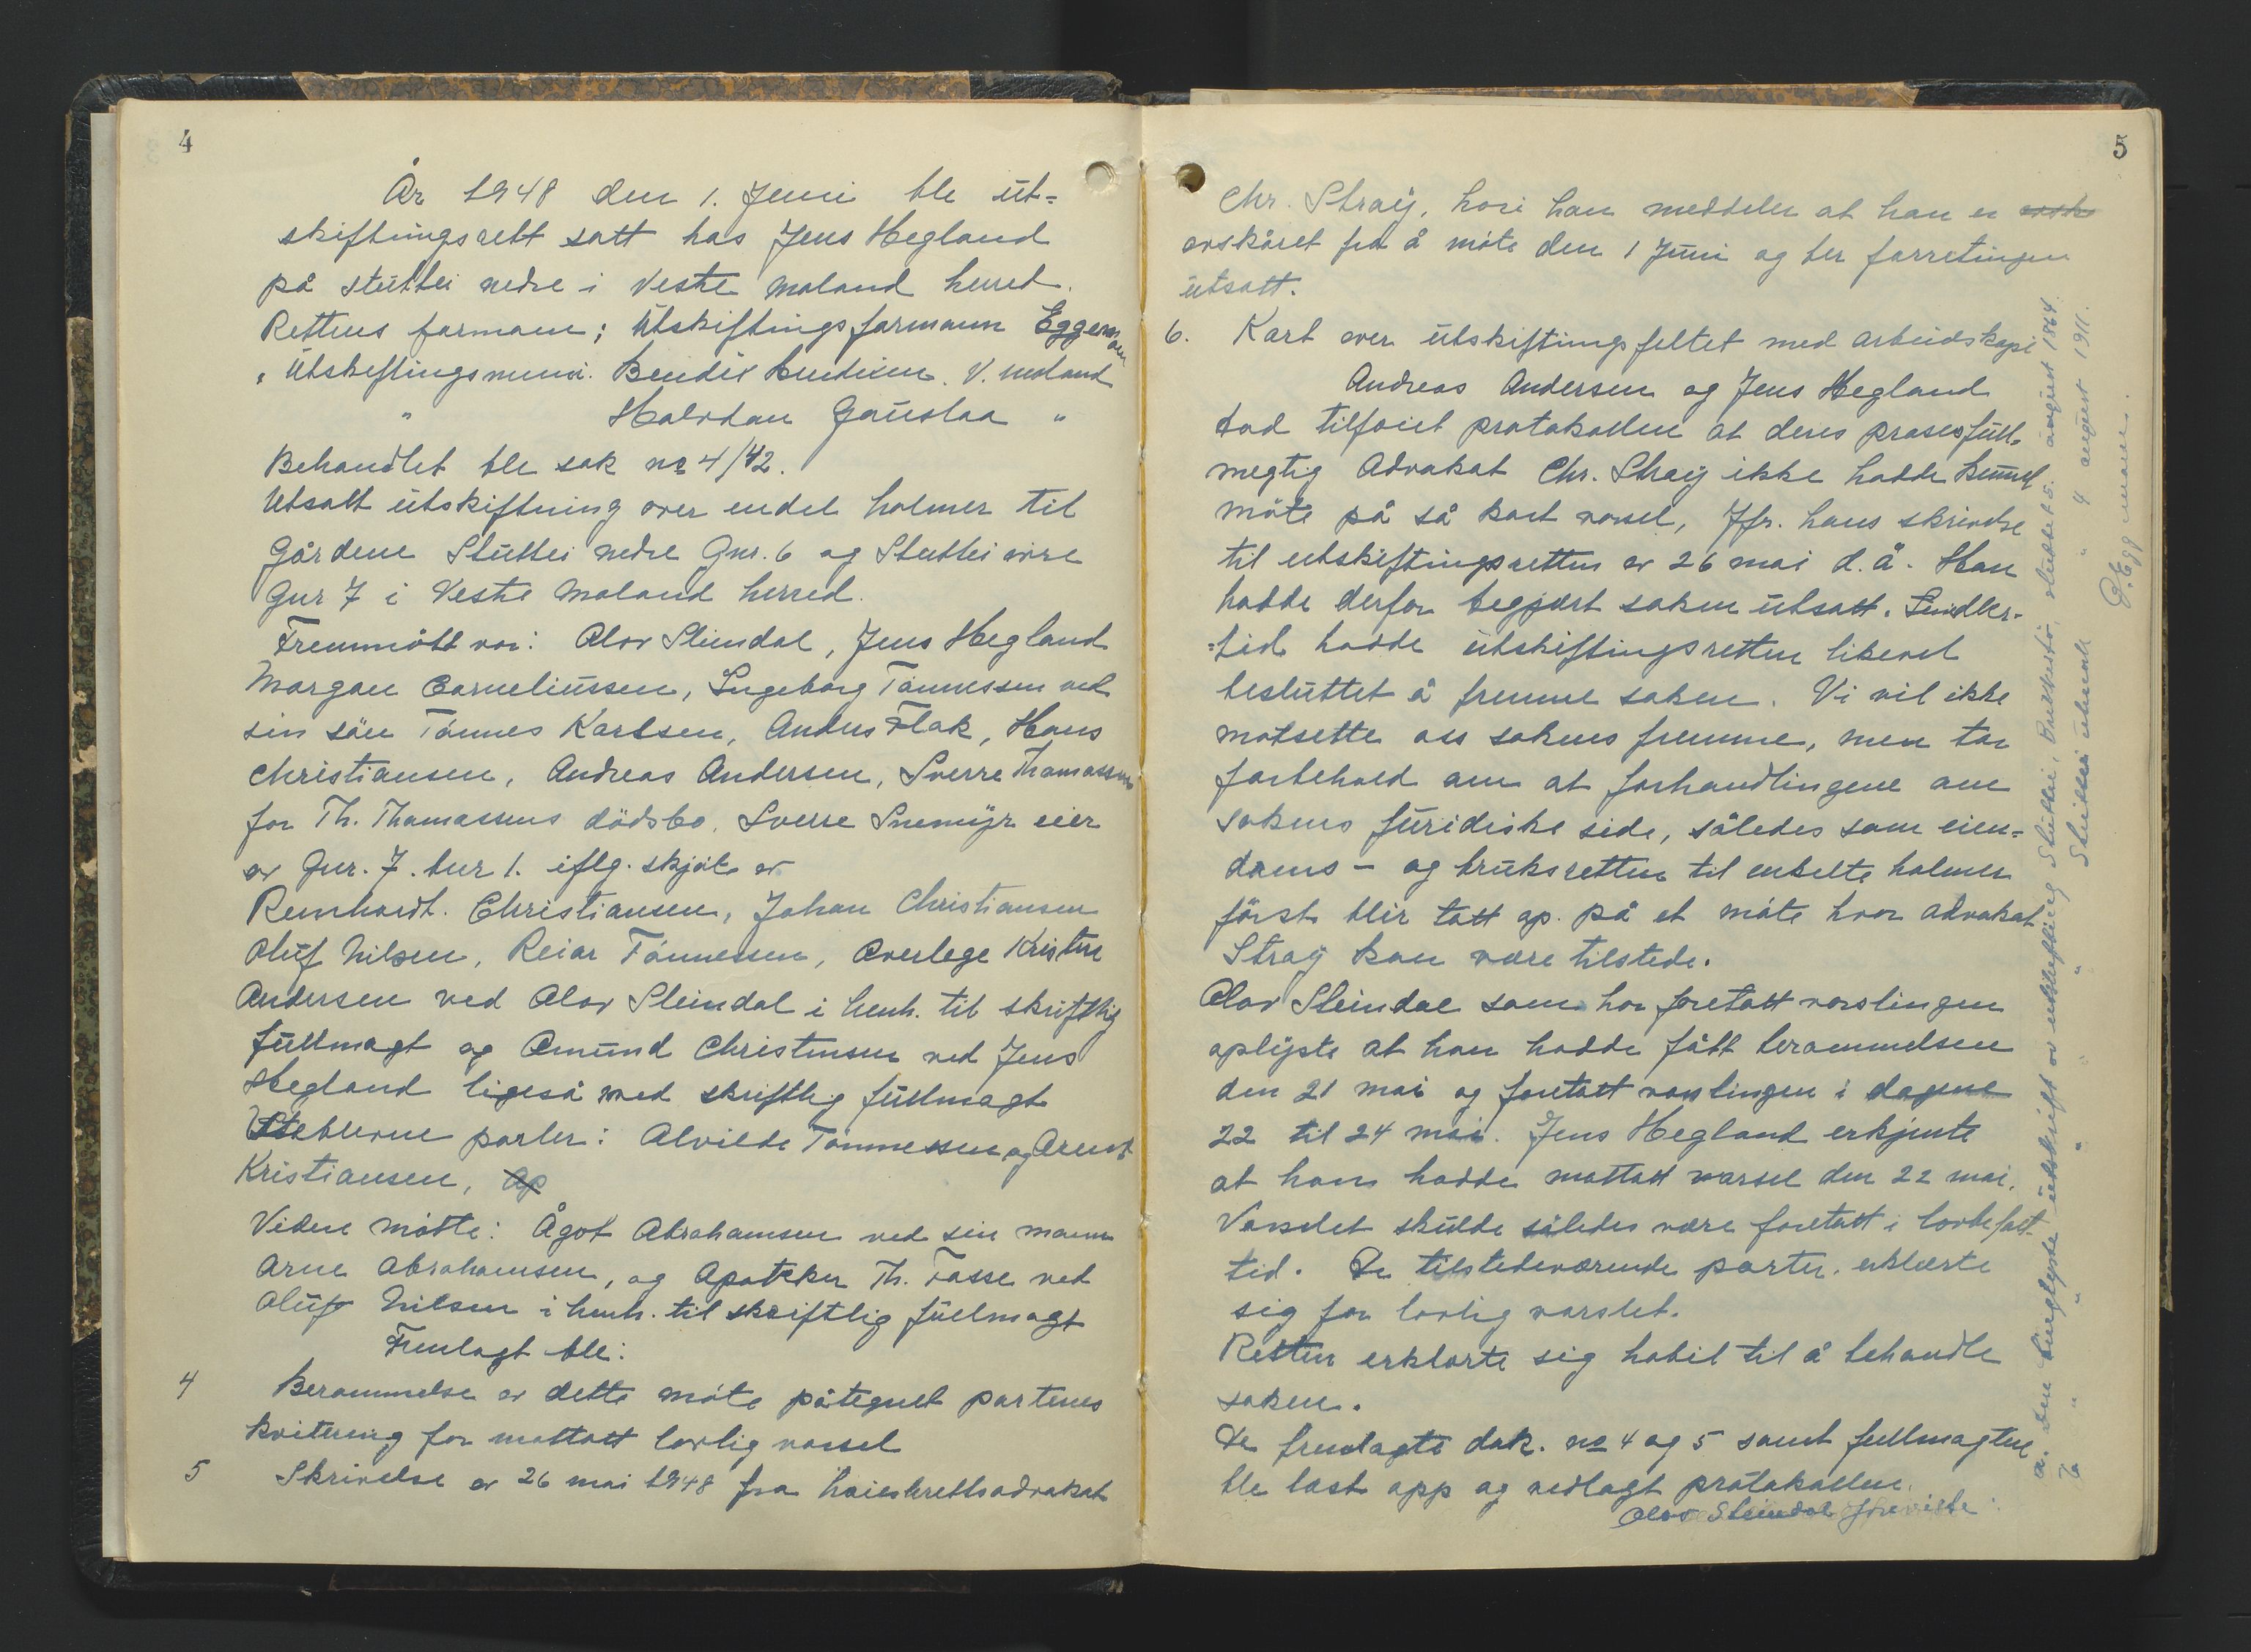 4
År 1948 den 1. Juni ble ut-
skiftningsrett satt hos Jens Hegland
på Stuttei nedre i Vestre Moland herred.
Rettens formann: Utskiftingsformann Eggemoen
" Utskiftingsmenn: Bendix Bendixen. V. Moland
" Halvdan Gauslaa "
Behandlet ble sak no 4/42.
Utsatt utskiftning over endel holmer til
Gårdene Stuttei nedre Gnr. 6 og Stuttei øvre
Gnr 7 i Vestre Moland herred.
Fremmött var: Olav Steindal, Jens Hegland
Morgan Corneliussen, Ingeborg Tönnessen ved
sin sön Tönnes Karlsen, Anders Flak, Hans
Christiansen, Andreas Andersen, Sverre Thomassen
for Th. Thomassens dödsbo. Sverre Snemyr eier
av Gnr. 7. bnr 1. iflg. skjöte av
Reinhardt. Christiansen, Johan Christiansen
Oluf Nilsen, Reiar Tönnessen, Overlege Kristen
Andersen ved Olav Steindal i henh. til skriftlig
fullmagt og Omund Christensen ved Jens
Hegland ligeså med skriftlig fullmagt
Uteblevne parter: Alvilde Tönnessen og Arent
Kristiansen, Op
Videre mötte: Ågot Abrahamsen ved sin mann
Arne Abrahamsen, og Apoteker Th. Fasse ved
Oluf Nilsen i henh. til skriftlig fullmagt
Fremlagt ble:
4 Berammelse av dette möte påtegnet partenes
kvitering for mottatt lovlig varsel
5 Skrivelse av 26 mai 1948 fra höiesterettsadvokat
5
Chr. Stray, hvori han meddeler at han er
avskåret fra å möte den 1 Juni og ber forretingen
utsatt.
6. Kart over utskiftingsfeltet med arbeidskopi
Andreas Andersen og Jens Hegland
bad tilföiet protokollen at deres prosesfull-
megtig Advokat Chr. Stray ikke hadde kunnet
möte på så kort varsel, Jfr. hans skrivelse
til utskiftingsretten av 26 mai d.å. Han
hadde derfor begjært saken utsatt. Imidler-
tid hadde utskiftingsretten likevel
besluttet å fremme saken. Vi vil ikke
motsette oss sakens fremme, men tar
forbehold om at forhandlingene om
sakens juridiske side, således som eien-
doms- og bruksretten til enkelte holmer
först blir tatt op. på et möte hvor advokat
Stray kan være tilstede.
Olav Steindal som har foretatt varslingen
oplyste at han hadde fått berammelsen
den 21 mai og foretatt varslingen i dagene
22 til 24 mai. Jens Hegland erkjente
at han hadde mottatt varsel den 22 mai.
Varslet skulde således være foretatt i lovbefalt
tid. De tilstedeværende parter. erklærte
sig for lovlig varslet.
Retten erklærte sig habil til å behandle
saken.
De fremlagte dok. no 4 og 5 samt fullmagtene
ble læst opp og vedlagt protokollen.
Olav Steindal foreviste:
a. Den tinglyste utskrift av utskifting Stuttei, sluttet 5. august 1864.
b " " " " Stuttei utmark " 4 august 1911.
O. Eggemoen.